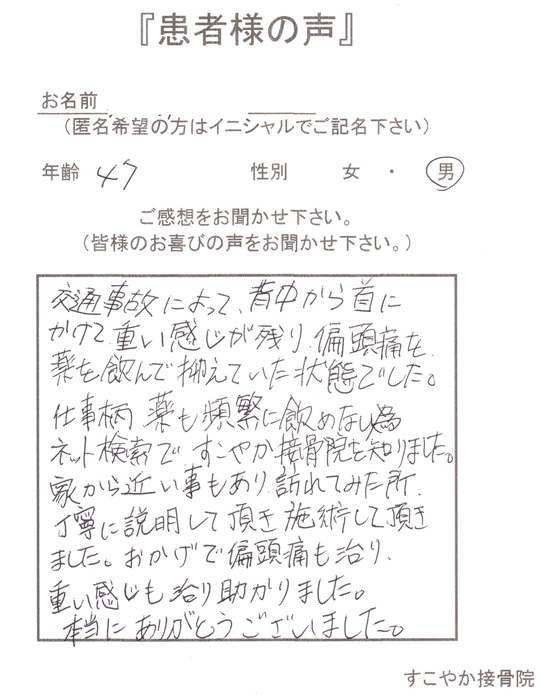 『患者様の声』
お名前
（匿名希望の方はイニシャルでご記名下さい）
年齢 47 性別 女 ・ 男
ご感想をお聞かせ下さい。
（皆様のお喜びの声をお聞かせ下さい。）
交通事故によって、背中から首に
かけて重い感じが残り、偏頭痛を
薬を飲んで抑えていた状態でした。
仕事柄 薬も頻繁に飲めない為
ネット検索で すこやか接骨院を知りました。
家から近い事もあり 訪れてみた所、
丁寧に説明して頂き 施術して頂き
ました。おかげで偏頭痛も治り、
重い感じも治り助かりました。
本当に ありがとうございました。
すこやか接骨院